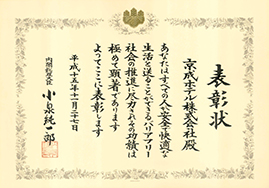 表彰状
京成ホテル株式会社殿
あなたはすべての人が安全で快適な
生活を送ることができるバリアフリー
社会の推進に尽力されその功績は
極めて顕著であります
よってここに表彰します
平成十五年十二月二十七日
内閣総理大臣
小泉純一郎